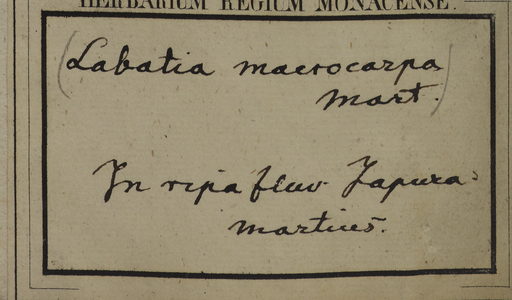 HERBARIUM REGIUM MONACENSE.
(Labatia macrocarpa
Mart.)
In ripa fluv. Japura
Martius.